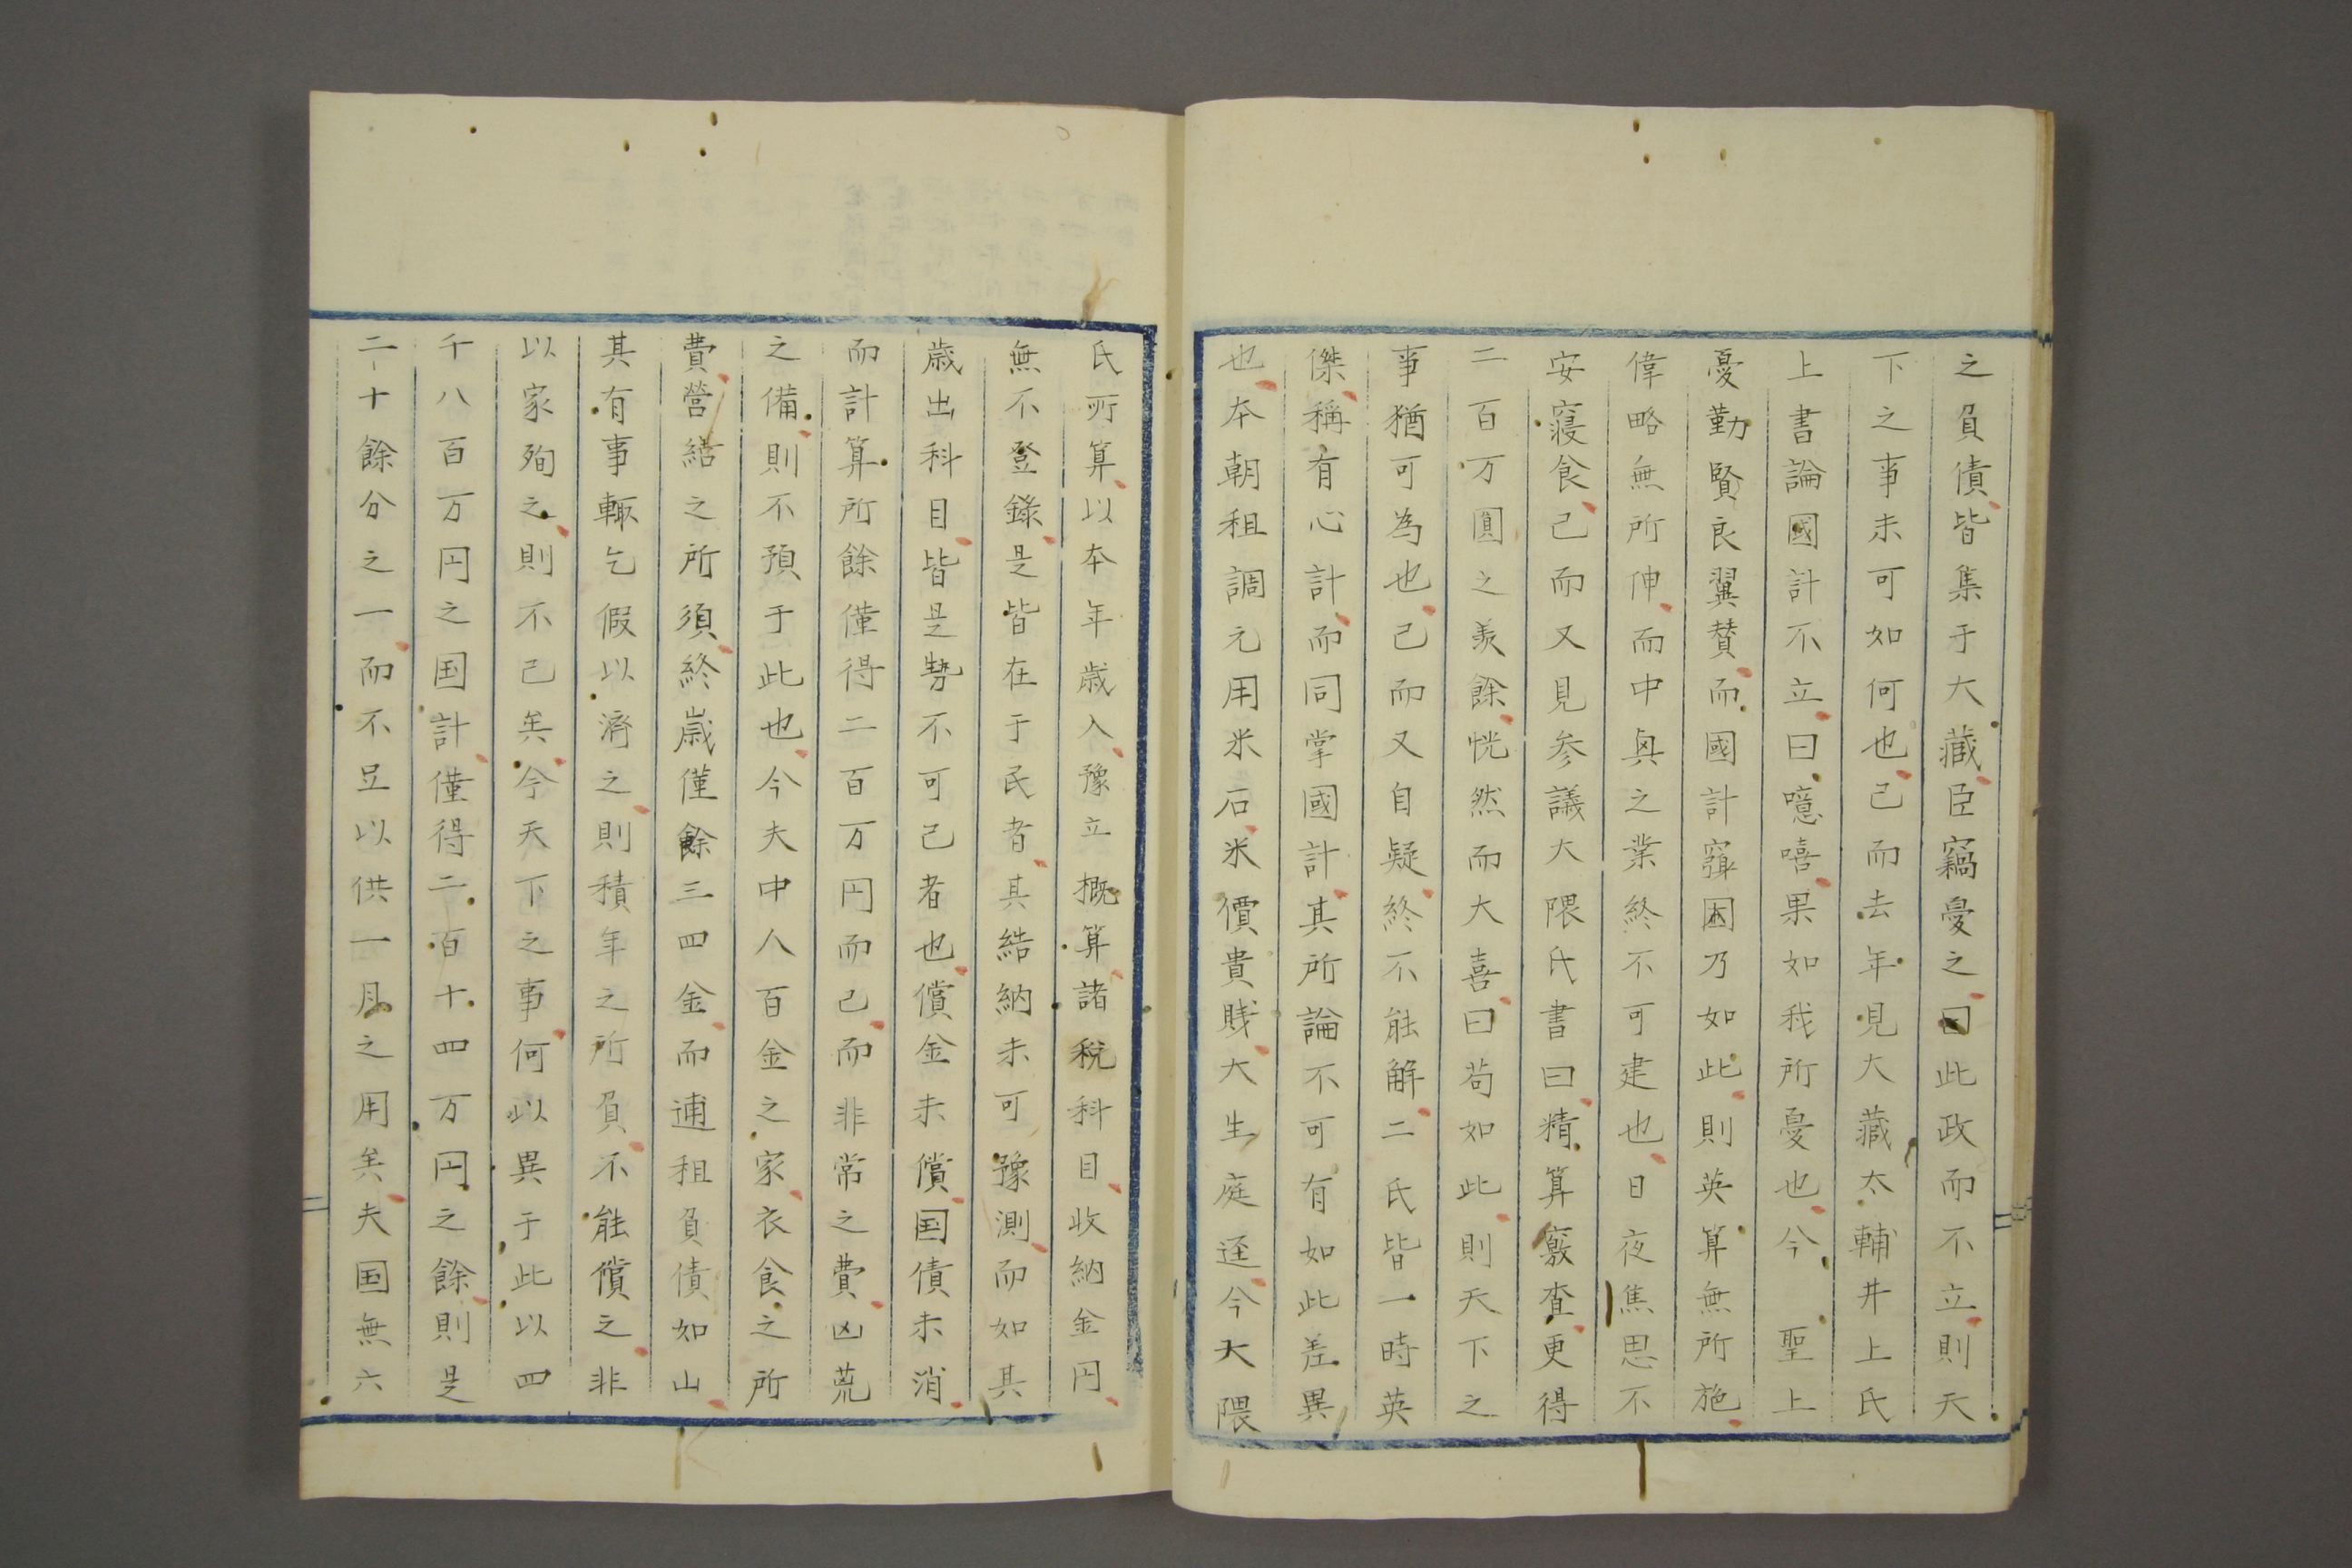 之負債皆集于大藏臣竊憂之曰此政而不立則天
下之事未可如何也已而去年見大藏太輔井上氏
上書論國計不立曰噫嘻果如我所憂也今　聖上
憂勤賢良翼賛而國計窮困乃如此則英算無所施
偉略無所伸而中興之業終不可建也日夜焦思不
安寢食已而又見参議大隈氏書曰精算覈査更得
二百万圓之羨餘恍然而大喜曰苟如此則天下之
事猶可為也已而又自疑終不能解二氏皆一時英
傑稱有心計而同掌國計其所論不可有如此差異
也本朝租調元用米石米價貴賤大生庭逕今大隈
氏所算以本年歳入豫立概算諸税科目收納金円
無不登錄是皆在于民者其結納未可豫測而如其
歳出科目皆是勢不可已者也償金未償国債未消
而計算所餘僅得二百万円而已而非常之費凶荒
之備則不預于此也今夫中人百金之家衣食之所
費營繕之所須終歳僅餘三四金而逋租負債如山
其有事輙乞假以濟之則積年之所負不能償之非
以家殉之則不已矣今天下之事何以異于此以四
千八百万円之国計僅得二百十四万円之餘則是
二十餘分之一而不足以供一月之用矣夫国無六